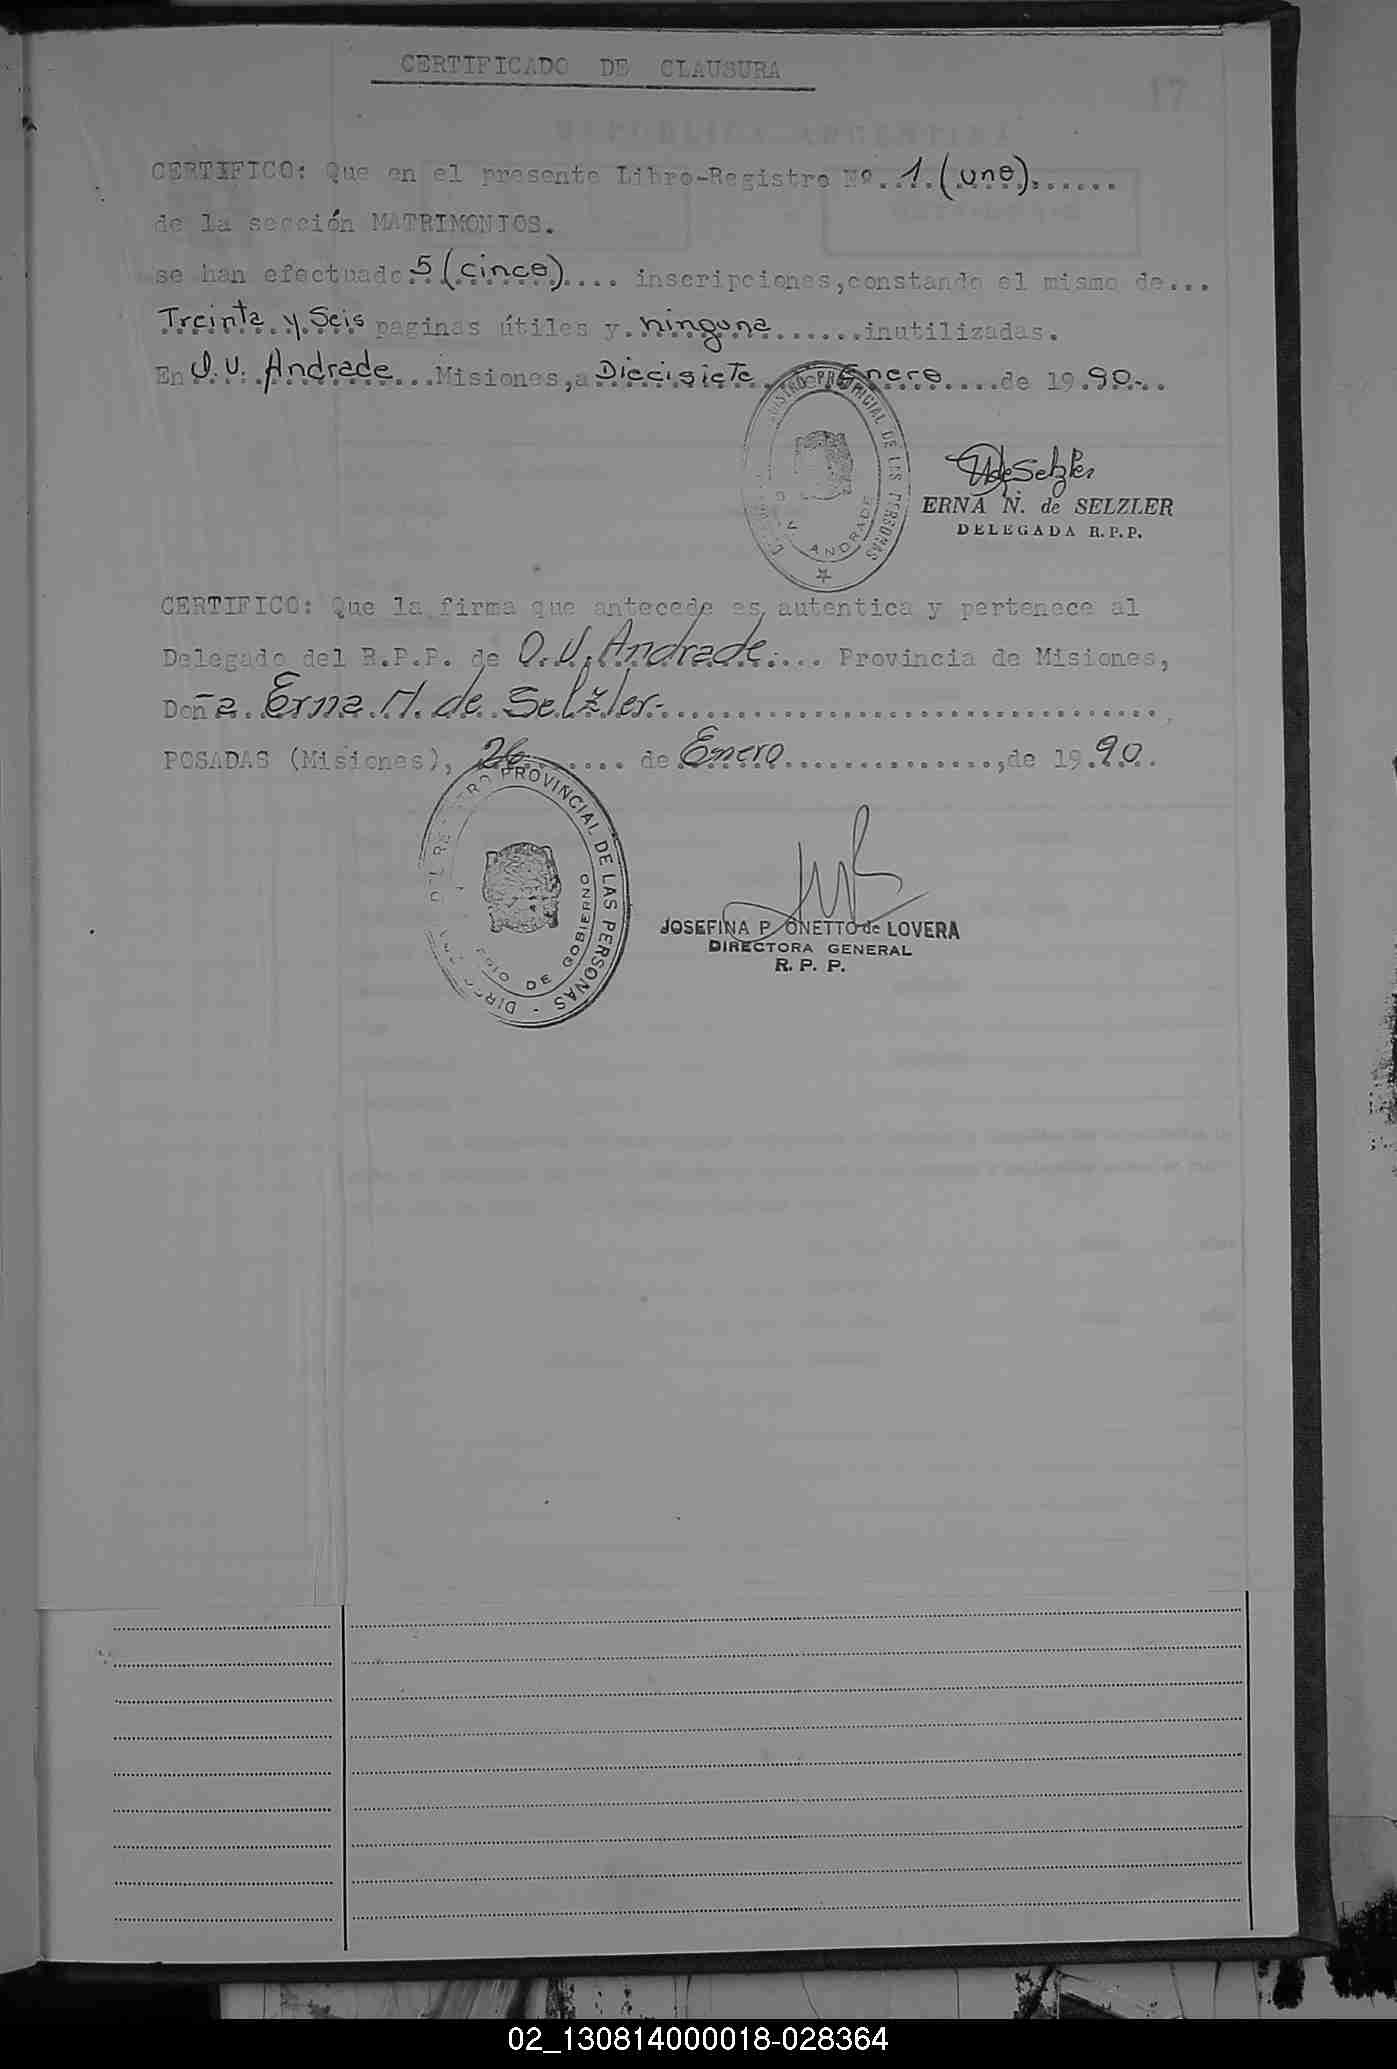 CERTIFICADO DE CLAUSURA
17
REPUBLICA ARGENTINA
CERTIFICO: Que en el presente Libro-Registro Nº. 1.(uno).......
de la sección MATRIMONIOS.
se han efectuado 5 (cinco).... inscripciones,constando el mismo de...
Treinta y Seis paginas útiles y ninguna.......inutilizadas.
En O.V. Andrade...Misiones,a Diecisiete Enero....de 19.90-..
REGISTRO PROVINCIAL DE LAS PERSONAS
O. V. ANDRADE
ERNA N. de SELZLER
DELEGADA R.P.P.
CERTIFICO: Que la firma que antecede es autentica y pertenece al
Delegado del R.P.P. de O.V. Andrade.-... Provincia de Misiones,
Doña Erna N. de Selzler.-
POSADAS (Misiones), 26 .... de Enero..............,de 19.90.
PROVINCIAL DE LAS PERSONAS
DE GOBIERNO
JOSEFINA P. ONETTO de LOVERA
DIRECTORA GENERAL
R. P. P.
02_130814000018-028364